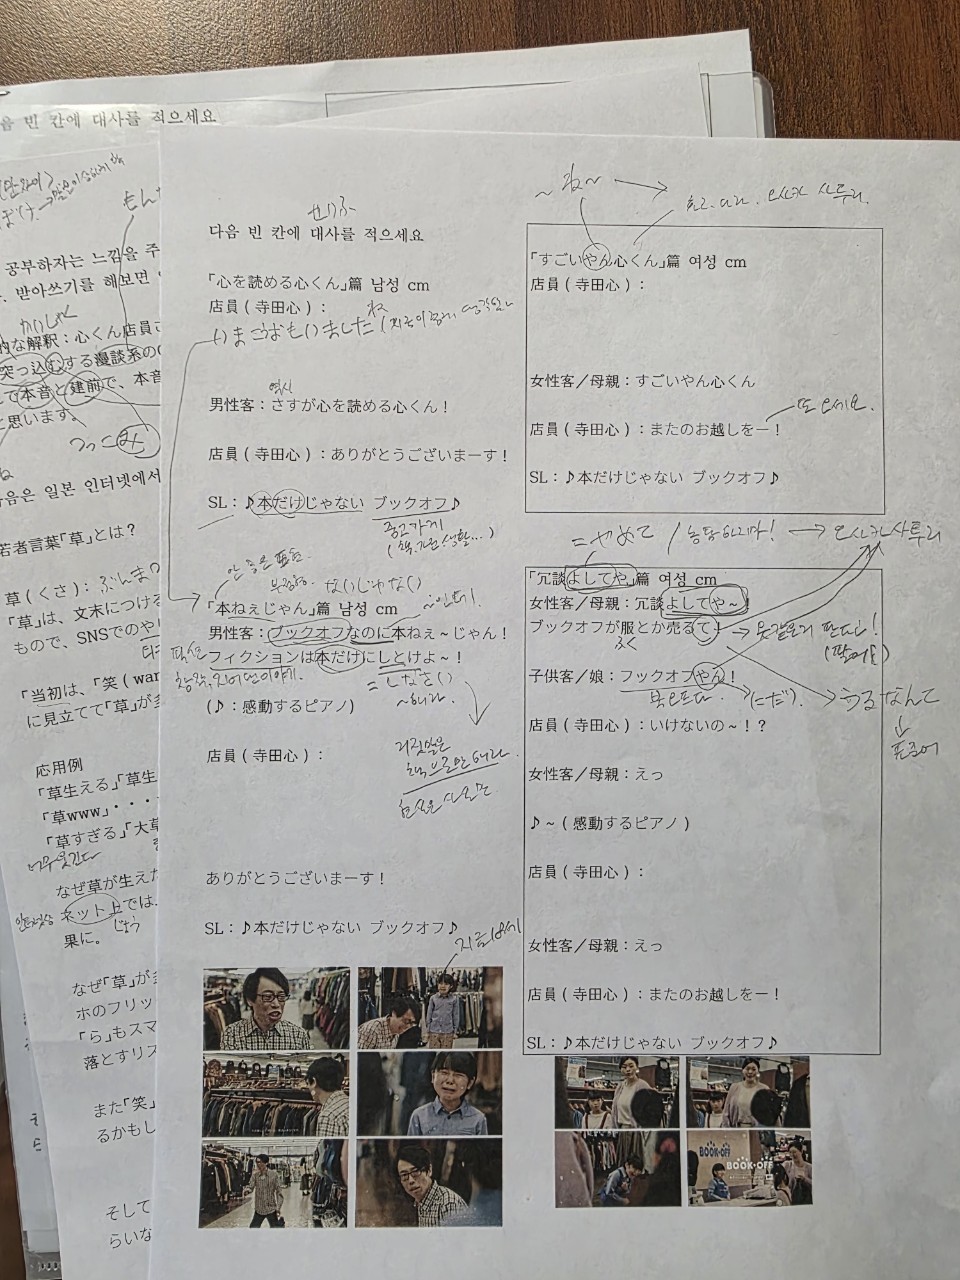 음 빈 칸에 대사를 적으세요
もん
공부하자는 느낌을 주
받아쓰기를 해보면
かいしゃく
的な解釈：心くん店員
突っ込むする漫談系の
て本音と建前で、本音
と思います。
つっこみ
음은 일본 인터넷에서
若者言葉「草」とは？
草(くさ)：ぶんまつ
「草」は、文末につける
もので、SNSでのやり
「当初は、「笑(war
に見立てて「草」が多
応用例
「草生える」「草生
「草www」・・・
「草すぎる」「大草
너무웃긴다
なぜ草が生えた
ネット上では、
果に。 じょう
なぜ「草」が
ホのフリッ
「ら」もスマ
落とすリス
また「笑」
るかもし
そして
らいな
せりふ
다음 빈 칸에 대사를 적으세요
「心を読める心くん」篇 남성 cm
店員(寺田心)：
いまこうおもいましたね
역시
男性客：さすが心を読める心くん！
店員(寺田心)：ありがとうございまーす！
SL：♪本だけじゃない ブックオフ♪
중고가게
안 좋은 표현
ないじゃない
「本ねぇじゃん」篇 남성 cm
~인데!
男性客：ブックオフなのに本ねぇ～じゃん！
フィクションは本だけにしとけよ～！
= しなさい
~해라.
(♪：感動するピアノ)
店員(寺田心)：
거짓말은
책으로만 해라
ありがとうございまーす！
SL：♪本だけじゃない ブックオフ♪
지금 18세
~ね~ → 오사카 사투리.
「すごいやん心くん」篇 여성 cm
店員(寺田心)：
女性客/母親：すごいやん心くん
또 오세요.
店員(寺田心)：またのお越しをー！
SL：♪本だけじゃない ブックオフ♪
= やめて / 농담하지마! → 오사카사투리
「冗談よしてや」篇 여성 cm
女性客/母親：冗談よしてや～
ブックオフが服とか売るて！
ふく
子供客/娘：フックオフやん！
북오프다. (だ).
→ うるなんて
↓
표준어
店員(寺田心)：いけないの～！？
女性客/母親：えっ
♪～(感動するピアノ)
店員(寺田心)：
女性客/母親：えっ
店員(寺田心)：またのお越しをー！
SL：♪本だけじゃない ブックオフ♪
BOOK・OFF
BOOK・OFF